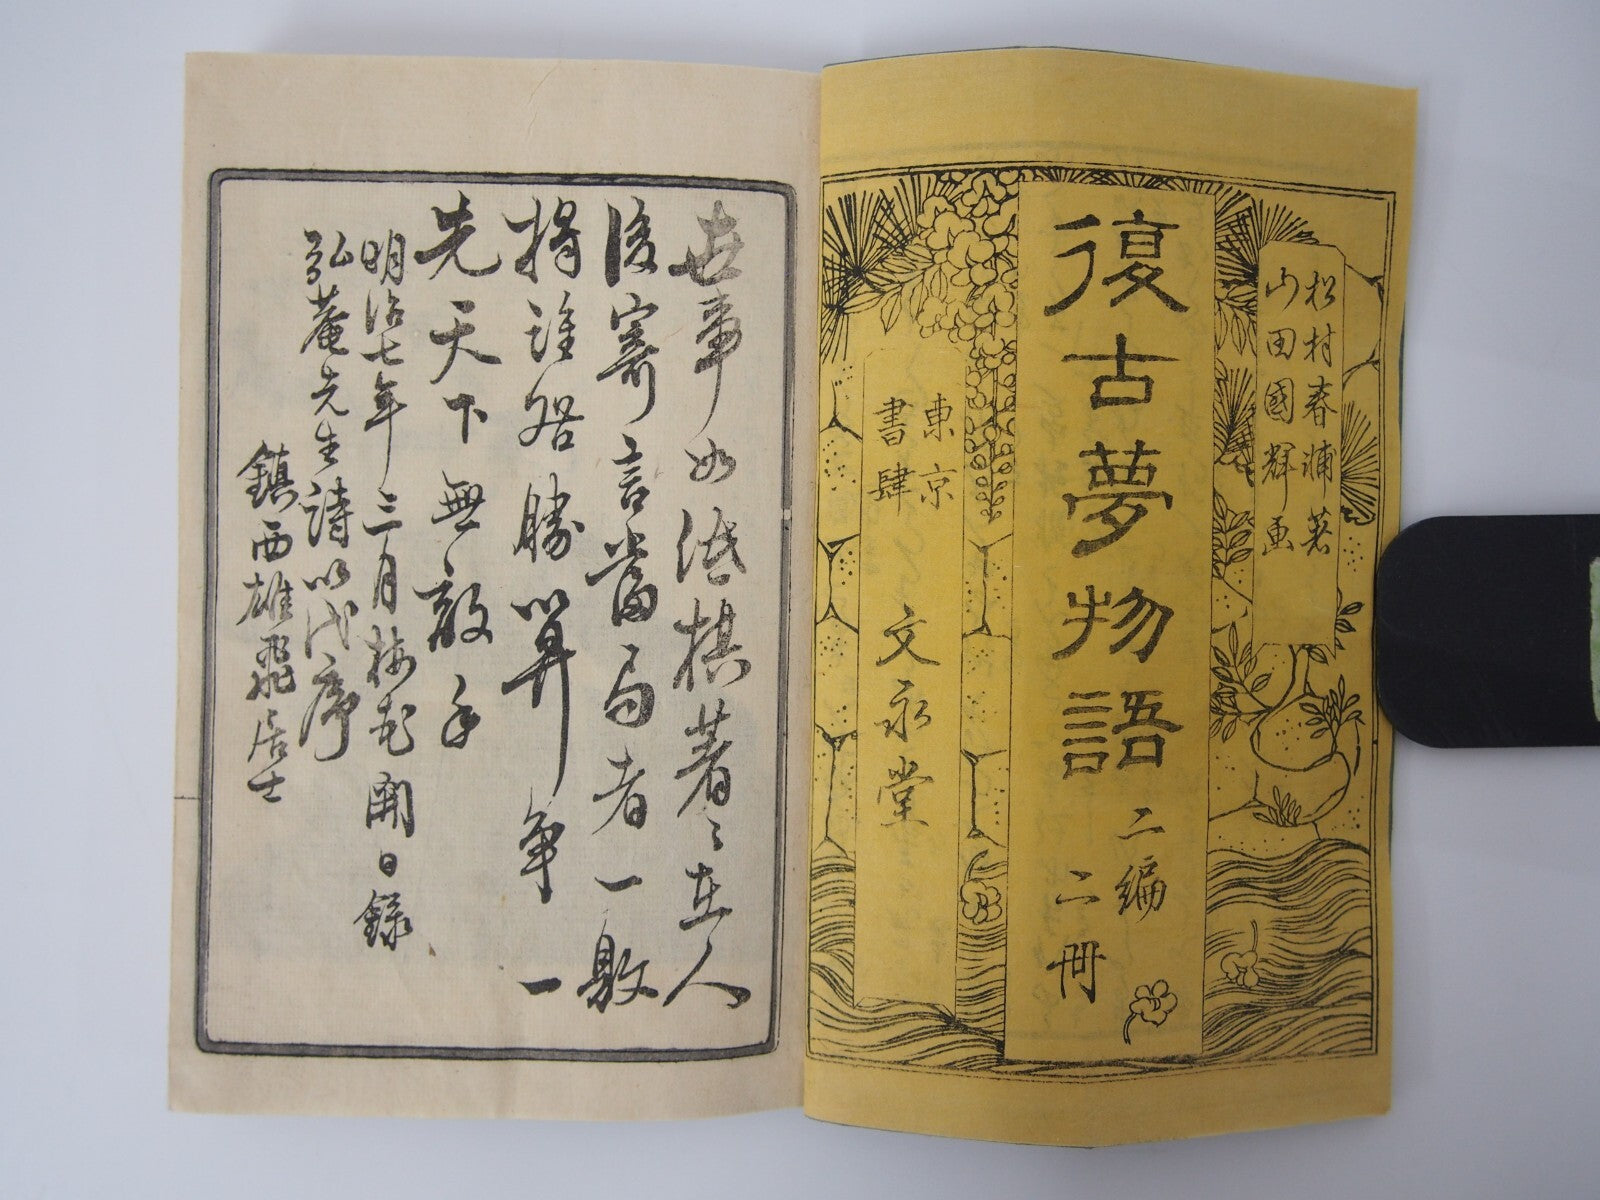 松村春輔著
山田國輝画
復古夢物語 二編
二冊
東京
書肆 文永堂
世事如殘棋著々在人
後寄言當局者一敗
将誰咎勝算争一
先天下無敵手
明治七年三月梅花開日録
弘菴先生詩以代序
鎮西雄飛居士